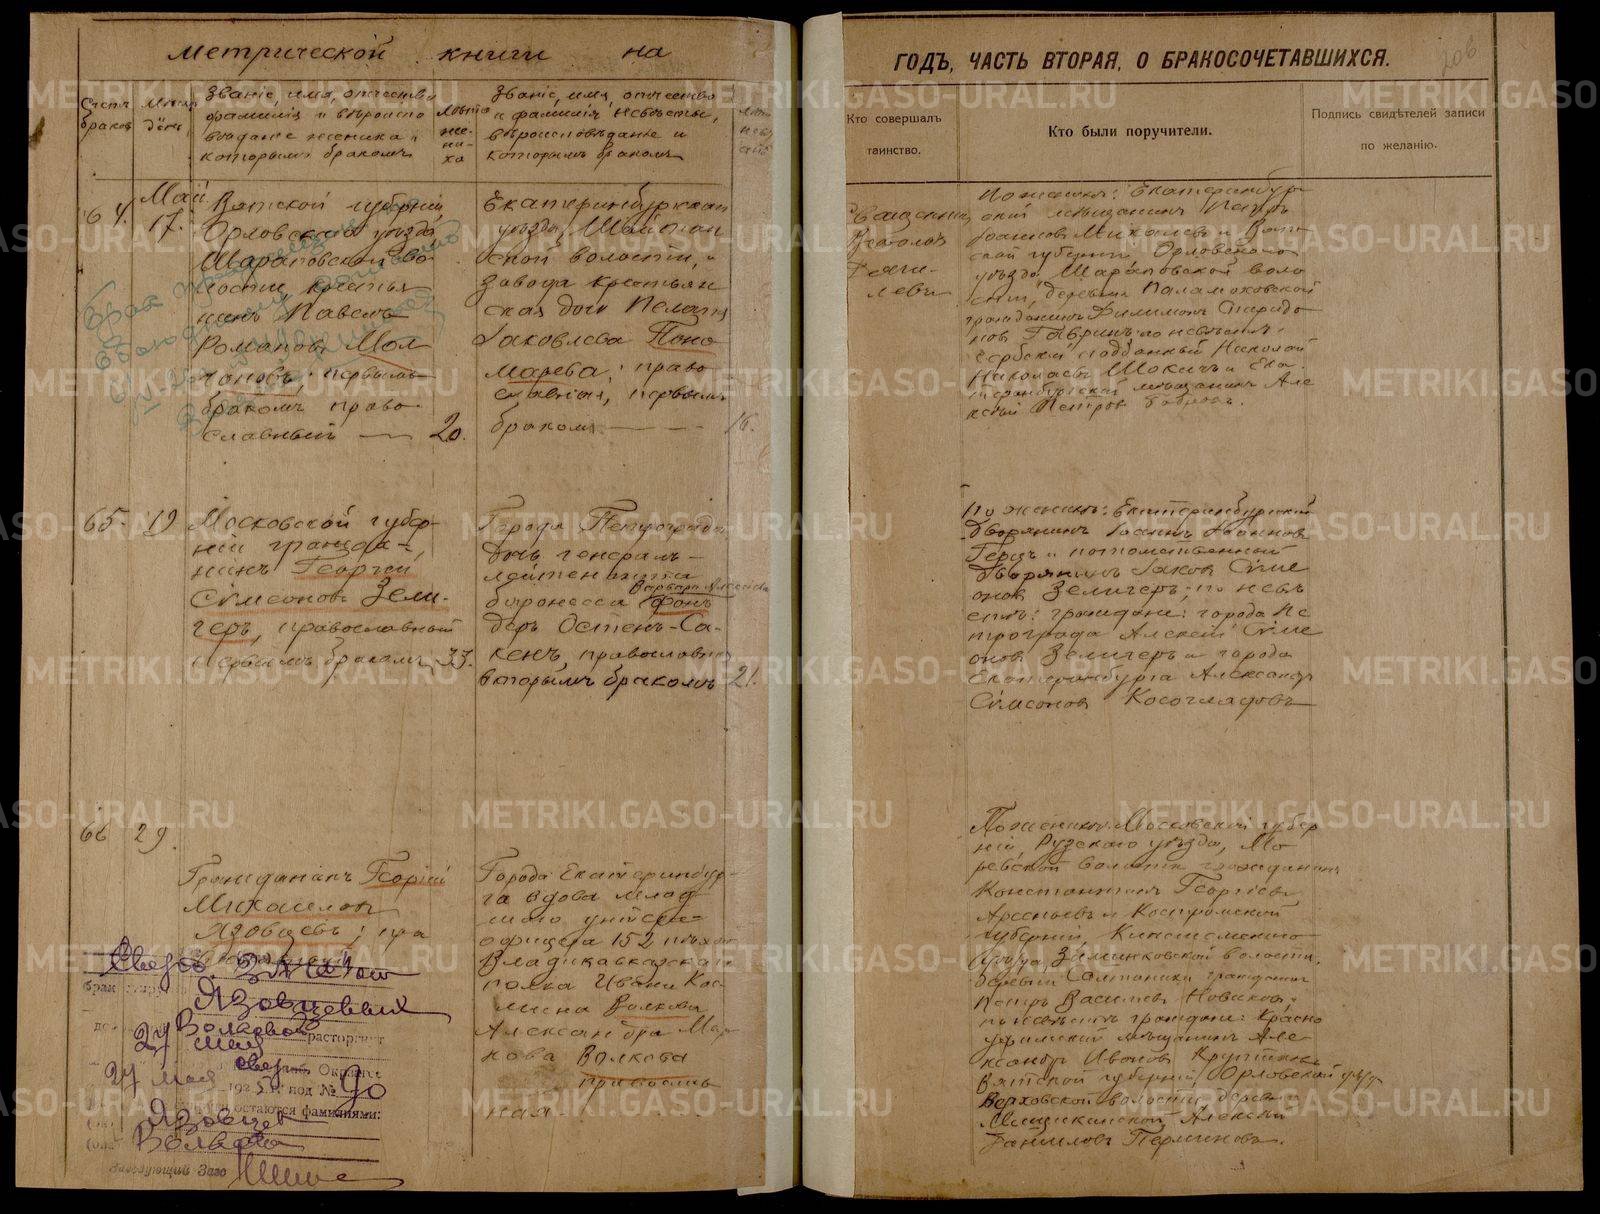 Метрической книги на
ГОДЪ, ЧАСТЬ ВТОРАЯ, О БРАКОСОЧЕТАВШИХСЯ.
206
Счетъ браковъ
Мѣсяцъ день
Званіе, имя, отчество
фамилія и вѣроиспо
вѣданіе жениха и
которымъ бракомъ
Лѣта
же-
ни-
ха
Званіе, имя, отчество
и фамилія невѣсты,
вѣроисповѣданіе и
которымъ бракомъ
Кто совершалъ
таинство.
Кто были поручители.
Подпись свидѣтелей записи
по желанію.
64.
Май
17.
Вятской губерніи
Орловскаго уѣзда
Шараповской во
лости крестья
нинъ Павелъ
Романовъ Мол
чановъ; первымъ
бракомъ право
славный
20.
Екатеринбургскаго
уѣзда, Шайтан
ской волости, и
завода крестьян
ская дочь Пелагія
Іаковлева Поно
марева; право
славная, первымъ
бракомъ
16.
Священникъ
По женихѣ: Екатеринбург
скій мѣщанинъ Петръ
Іоанновъ Михалевъ и Вят
ской губерніи Орловскаго
уѣзда Шараповской воло
сти, деревни Паламоховской
гражданинъ Филимонъ Спиридо
новъ Гавринъ; по невѣстѣ:
Сербскій подданный Николай
Николаевъ Шокичъ и Ека
теринбургскій мѣщанинъ Але
ксѣй Петровъ Бобровъ.
65.
19
Московской губер-
ніи гражда-
нинъ Георгій
Сѵмеоновъ Зели-
геръ, православный
первымъ бракомъ
33.
Города Петрограда
дочь генералъ-
лейтенанта
Варвара Алексѣева
баронесса фонъ
деръ Остенъ-Са-
кенъ, православная
вторымъ бракомъ
21.
По женихѣ: Екатеринбургскій
дворянинъ Іоаннъ Іоанновъ
Герцъ и потомственный
дворянинъ Іаковъ Сѵме
оновъ Зелигеръ; по невѣ
стѣ: граждане: города Пе
трограда Алексій Сѵме
оновъ Зелигеръ и города
Екатеринбурга Александръ
Сѵмеоновъ Косоглядовъ
66
29.
Гражданинъ Георгій
Михаиловъ
Язовцевъ; пра
Города Екатеринбур-
га вдова млад
шаго унтеръ-
офицера 152 пѣхот
Владикавказскаго
полка Ивана Кос-
мина Волкова
Александра Мар
кова Волкова
православ
ная
По женихѣ: Московской губер
ніи, Рузскаго уѣзда, Мо
ревской волости гражданинъ
Константинъ Георгіевъ
Арсеньевъ и Костромской
губерніи Кинешемскаго
уѣзда, Зименковской волости,
деревни гражданинъ
Петръ Васильевъ Новиковъ;
по невѣстѣ граждане: Красно
уфимскій мѣщанинъ Але
ксандръ Ивановъ
Вятской губерніи, Орловскаго уѣзда
Верховской волости, деревни
Алексѣй
Даниловъ Перминовъ.
Сверд. Загсом
брак
Язовцевых
Волковой
расторгнут
27 мая
Сверд. Окрзагсе
27 мая 192 г. под № 90
остаются фамилиями:
Язовцев
Волкова
Заведующий Загс
METRIKI.GASO-URAL.RU